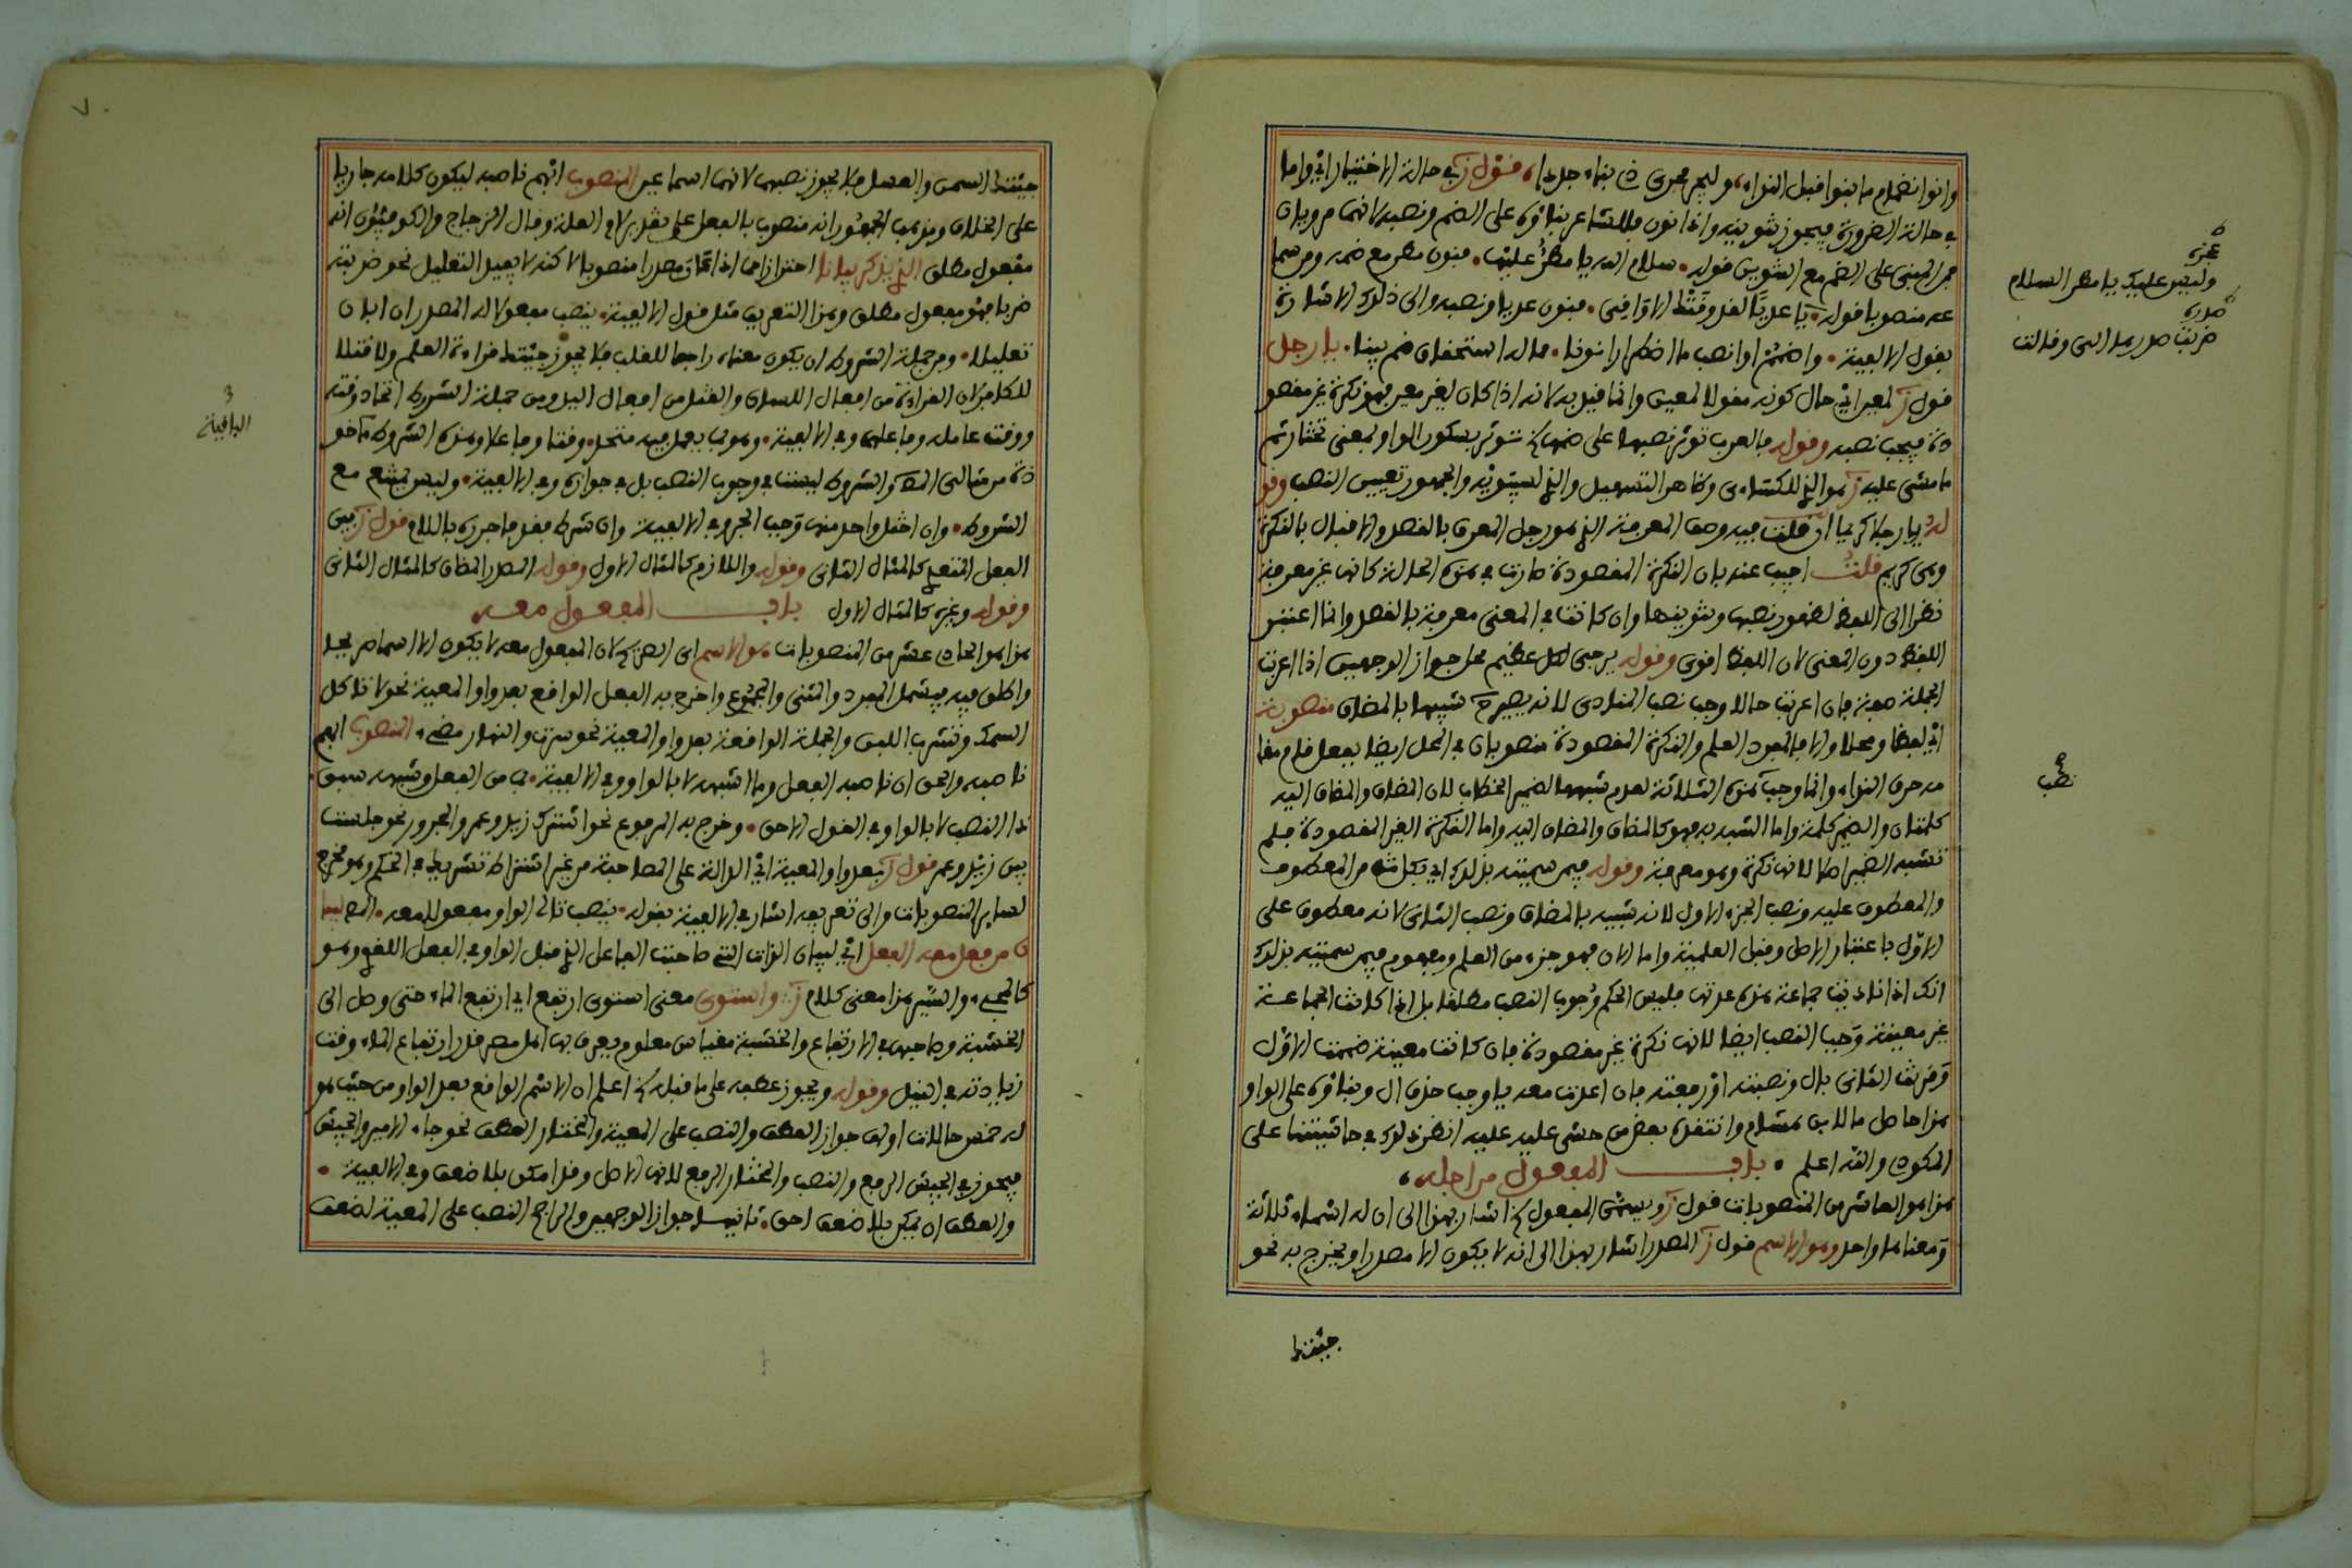 وانو انضمام ما بنوا قبل النداء وليجر مجرى ذي بناء جددا قول ز في حالة الاختيار اي واما
في حالة الضرورة فيجوز تنوينه واذا نون فللشاعر بناؤه على الضم ونصبه لانهما مرويان
فمن المبني على الضم مع التنوين قوله سلام الله يا مطر عليها فنون مطر مع ضمه ومن سما
عه منصوبا قوله يا عديا لقد وقتك الاواقي فنون عديا ونصبه والى ذلك الاشارة
بقول الالفية واضمم او انصب ما اضطرارا نونا مما له استحقاق ضم بينا يا رجل
قول ز لمعين اي حال كونه مقولا لمعين وانما قيل به لانه اذا كان لغير معين فهو نكرة غير مقصو
دة فيجب نصبه وقوله فالعرب توثر نصبها على ضمها توثر بسكون الواو بمعنى تختار ثم
ما مشى عليه ز هو الذي للكسائي وظاهر التسهيل والذي لسيبويه والجمهور تعيين النصب وقو
له يا رجلا كريما ان قلت فيه وصف المعرفة الذي هو رجل المعرف بالقصد والاقبال بالنكرة
وهي كريم قلت اجيب عنه بان النكرة المقصودة صارت في هذه الحالة كانها غير معرفة
نظرا الى اللفظ لظهور نصبها وتنوينها وان كانت في المعنى معرفة بالقصد وانما اعتبر
اللفظ دون المعنى لان اللفظ اقوى وقوله يرجى لكل عظيم محل جواز الوجهين اذا اعربت
الجملة صفة فان اعربت حالا وجب نصب المنادى لانه يصير شبيها بالمضاف منصوبة
اي لفظا ومحلا والا فالمفرد العلم والنكرة المقصودة منصوبان في المحل ايضا بفعل قام مقا
مه حرف النداء وانما وجب في هذه الثلاثة لعدم شبهها لضمير الخطاب لان المضاف والمضاف اليه
كلمتان والضمير كلمة واما الشبيه به فهو كالمضاف والمضاف اليه واما النكرة الغير المقصودة فلم
تشبه الضمير اصلا لانها نكرة وهو معرفة وقوله فيمن سميته بذلك اي بكل من المعطوف
والمعطوف عليه ونصب الجزء الاول لانه شبيه بالمضاف ونصب الثاني لانه معطوف على
الاول باعتبار الاصل وقبل العلمية واما الان فهو جزء من العلم ومفهوم فيمن سميته بذلك
انك اذا ناديت جماعة هذه عدتها فليس الحكم وجوب النصب مطلقا بل اذا كانت الجماعة
غير معينة وجب النصب ايضا لانها نكرة غير مقصودة فان كانت معينة ضممت الاول
وعرفت الثاني بال ونصبته او رفعته فان اعدت معه يا وجب حذف ال وبناؤه على الواو
هذا حاصل ما لابن هشام وانتقده بعض من حشى عليه انظر ذلك في حاشيتنا على
المكودي والله اعلم باب المفعول من اجله
هذا هو العاشر من المنصوبات قول ز ويسمى المفعول له اشار بهذا الى ان له اسماء ثلاثة
ومعناها واحد وهو الاسم قول ز المصدر اشار بهذا الى انه لا يكون الا مصدرا ويخرج به نحو
جئتك
عجزه
وليس عليك يا مطر السلام
صدره
ضربت صدرها الي وقالت
نصب
جئتك السمن والعسل فلا يجوز نصبهما لانهما اسما عين المنصوب ابهم ناصبه ليكون كلامه جاريا
على الخلاف ومذهب الجمهور انه منصوب بالفعل على تقدير لام العلة وقال الزجاج والكوفيون انه
مفعول مطلق الذي يذكر بيانا احترازا مما اذا كان مصدرا منصوبا لاكنه لا يفيد التعليل نحو ضربته
ضربا فهو مفعول مطلق وهذا التعريف مثل قول الالفية ينصب مفعولا له المصدر ان ابان
تعليلا ومن جملة الشروط ان يكون معناه راجعا للقلب فلا يجوز جئتك قراءة العلم ولا قتلا
للكافر لان القراءة من افعال اللسان والقتل من افعال اليد ومن جملة الشروط اتحاد وقته
ووقت عامله وفاعلهما وفي الالفية وهو بما يعمل فيه متحد وقتا وفاعلا وهذه الشروط ماخو
ذة من مثالي المص والشروط ليست في وجوب النصب بل في جوازه وفي الالفية وليس يمتنع مع
الشروط وان اختل واحد منها وجب الجر وفي الالفية وان شرط فقد فاجرره باللام قول ز بين
الفعل المتعدي كالمثال الثاني وقوله واللازم كالمثال الاول وقوله المصدر المضاف كالمثال الثاني
وقوله وغيره كالمثال الاول باب المفعول معه
هذا هو الحادي عشر من المنصوبات هو الاسم اي الصريح لان المفعول معه لا يكون الا اسما صريحا
واطلق فيه فيشمل المفرد والمثنى والمجموع واخرج به الفعل الواقع بعد واو المعية نحو لا تاكل
السمك وتشرب اللبن والجملة الواقعة بعد واو المعية نحو سرت والنهار مضيء المنصوب ابهم
ناصبه والحق ان ناصبه الفعل وما اشبهه لا بالواو وفي الالفية بما من الفعل وشبهه سبق
ذا النصب لا بالواو في القول الاحق وخرج به المرفوع نحو اشترك زيد وعمرو والمجرور نحو جلست
بين زيد وعمر قول ز بعد واو المعية اي الدالة على المصاحبة من غير اشتراط تشريك في الحكم وهو مخرج
لساير المنصوبات والى تعريفه اشار في الالفية بقوله ينصب تالي الواو مفعولا معه المص لبيا
ن من فعل معه الفعل اي لبيان الذات التي صاحبت الفاعل الذي قبل الواو في الفعل اللغوي وهو
كالمجيء والسير هذا معنى كلام ز واستوى معنى استوى ارتفع اي ارتفع الماء حتى وصل الى
الخشبة وصاحبها في الارتفاع والخشبة مقياس معلوم يعرف بها اهل مصر قدر ارتفاع الماء وقت
زيادته في النيل وقوله ويجوز عطفه على ما قبله اعلم ان الاسم الواقع بعد الواو من حيث هو
له خمس حالات اولها جواز العطف والنصب على المعية والمختار العطف نحو جاء الامير والجيش
فيجوز في الجيش الرفع والنصب والمختار الرفع لانه الاصل وقد امكن بلا ضعف وفي الالفية
والعطف ان يمكن بلا ضعف احق ثانيها جواز الوجهين والراجح النصب على المعية لضعف
الباقية